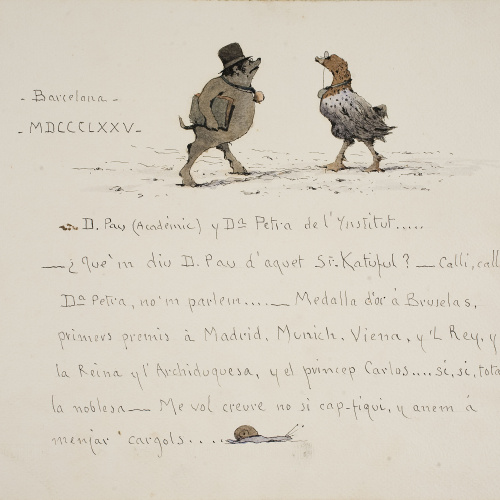 - Barcelona -
- MDCCCLXXV -
D. Pau (Académic) y Dª Petra de l'Ynstitut.....
— ¿Que'm diu D. Pau d'aquet Sr. Katúful? — Calli, call
Dª Petra, no'm parlem.... — Medalla d'or á Bruselas,
primers premis à Madrid, Munich, Viena, y'L Rey, y
la Reina y l'Archiduquesa, y el princep Carlos.... si, si, tota
la noblesa — Me vol creure no si cap-fiqui, y anem á
menjar cargols....